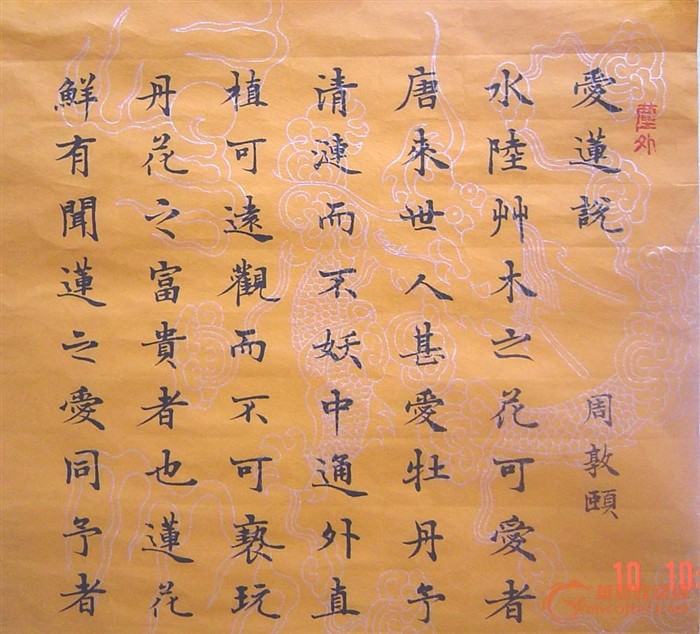 塵外
愛蓮說 周敦頤
水陸艸木之花可愛者
唐來世人甚愛牡丹予
清漣而不妖中通外直
植可遠觀而不可褻玩
丹花之富貴者也蓮花
鮮有聞蓮之愛同予者
10 10